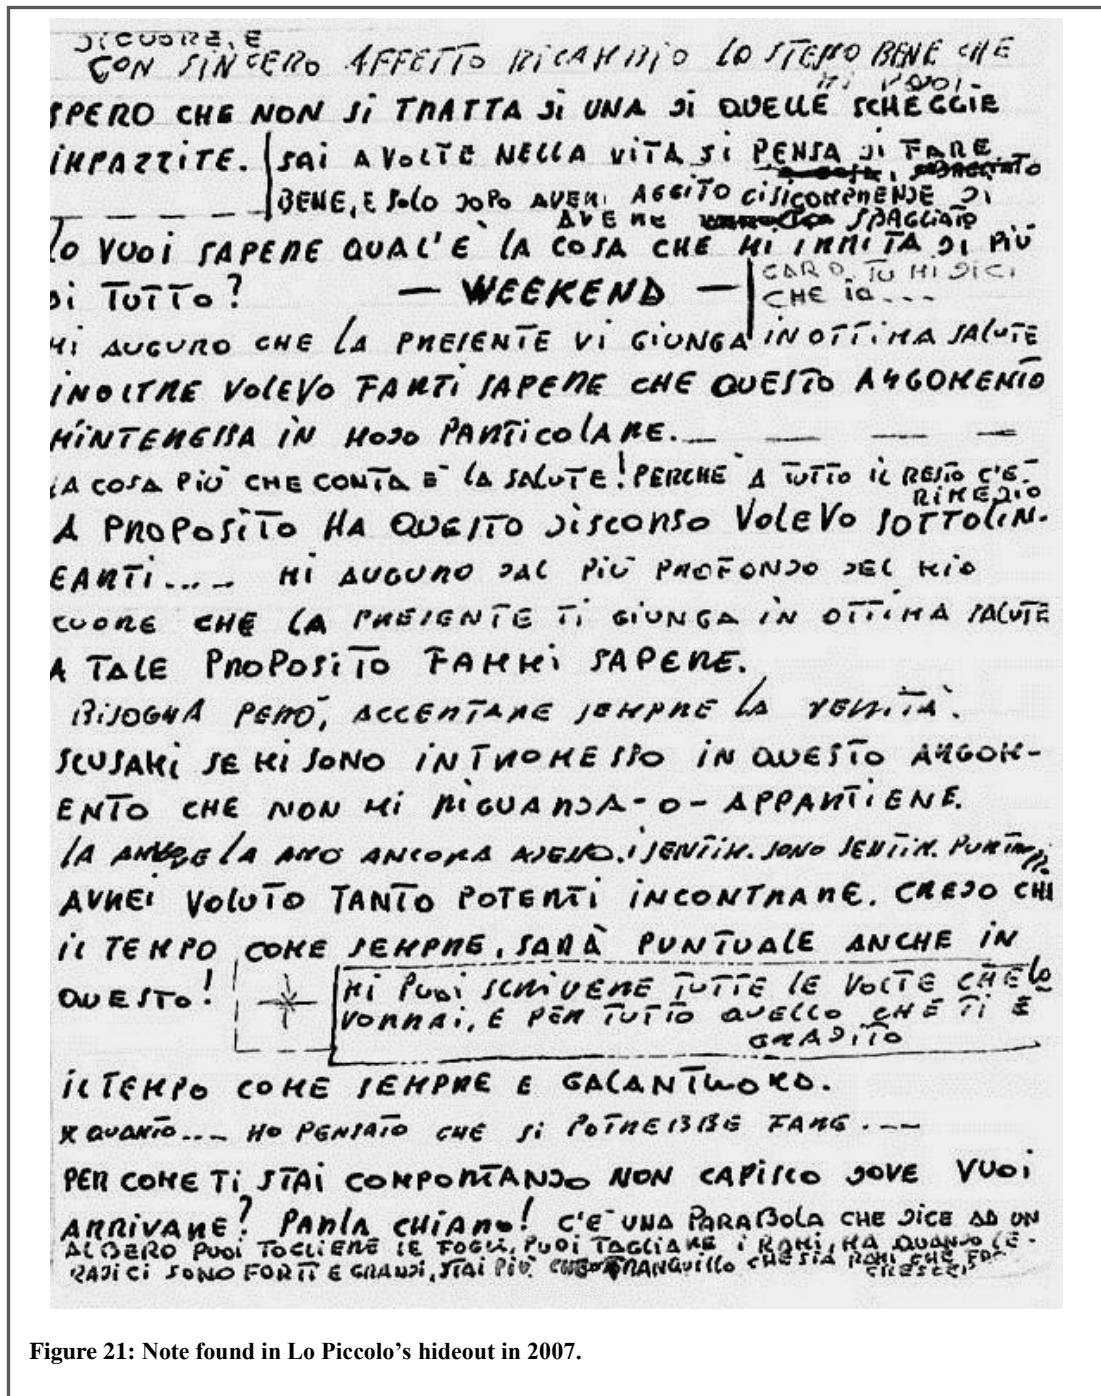 DI CUORE, E
CON SINCERO AFFETTO RICAMBIO LO STESSO BENE CHE
MI VUOI.
SPERO CHE NON SI TRATTA DI UNA DI QUELLE SCHEGGIE
IMPAZZITE. SAI A VOLTE NELLA VITA SI PENSA DI FARE
BENE, E SOLO DOPO AVERE AGGITO CI SI COMPRENDE DI
AVERE SBAGLIATO
LO VUOI SAPERE QUAL'È LA COSA CHE MI IRRITA DI PIÙ
DI TUTTO? — WEEKEND — CARO, TU MI DICI
CHE IO....
MI AUGURO CHE LA PRESENTE VI GIUNGA IN OTTIMA SALUTE
INOLTRE VOLEVO FARTI SAPERE CHE QUESTO ARGOMENTO
M'INTERESSA IN MODO PARTICOLARE. — — — —
LA COSA PIÙ CHE CONTA È LA SALUTE! PERCHE A TUTTO IL RESTO C'È
RIMEDIO
A PROPOSITO HA QUESTO DISCORSO VOLEVO SOTTOLIN-
EARTI.... MI AUGURO DAL PIÙ PROFONDO DEL MIO
CUORE CHE LA PRESENTE TI GIUNGA IN OTTIMA SALUTE
A TALE PROPOSITO FAMMI SAPERE.
BISOGNA PERÒ, ACCETTARE SEMPRE LA VERITÀ.
SCUSAMI SE MI SONO INTROMESSO IN QUESTO ARGOM-
ENTO CHE NON MI RIGUARDA-O-APPARTIENE.
LA AMO ANCORA ADESSO. I SENTIM. SONO SENTIM. PURTR
AVREI VOLUTO TANTO POTERTI INCONTRARE. CREDO CHE
IL TEMPO COME SEMPRE, SARÀ PUNTUALE ANCHE IN
QUESTO! MI PUOI SCRIVERE TUTTE LE VOLTE CHE LO
VORRAI, E PER TUTTO QUELLO CHE TI È
GRADITO
IL TEMPO COME SEMPRE E GALANTUOMO.
X QUANTO.... HO PENSATO CHE SI POTREBBE FARE....
PER COME TI STAI COMPORTANDO NON CAPISCO DOVE VUOI
ARRIVARE? PARLA CHIARO! C'È UNA PARABOLA CHE DICE AD UN
ALBERO PUOI TOGLIERE LE FOGLI, PUOI TAGLIARE I RAMI, MA QUANDO LE
RADICI SONO FORTI E GRANDI, STAI PIÙ CHE TRANQUILLO CHE SIA RAMI CHE
Figure 21: Note found in Lo Piccolo's hideout in 2007.